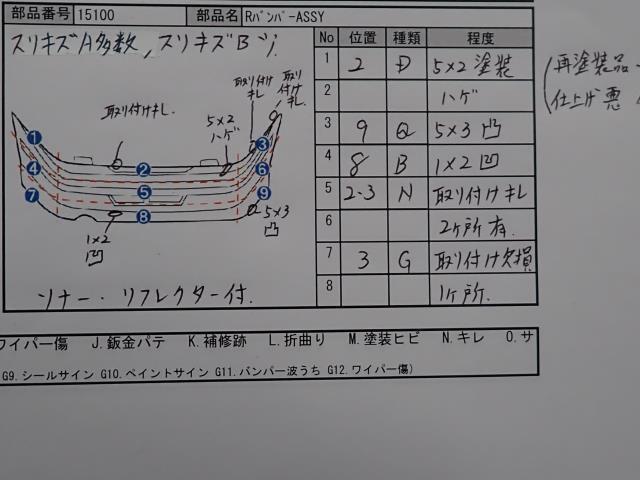 部品番号 15100 部品名 Rバンパ-ASSY
スリキズA多数, スリキズB 1/.
取り付けキレ.
5×2
ハゲ
取り付け
キレ
取り
付け
キレ.
1 2 3
4 5 6
7 8 9
1×2
凹
5×3
凸
ソナー・リフレクター付.
No 位置 種類 程度
1 2 D 5×2 塗装
2 ハゲ
3 9 Q 5×3 凸
4 8 B 1×2 凹
5 2-3 N 取り付けキレ
6 2ヶ所有.
7 3 G 取り付け欠損
8 1ヶ所.
(再塗装品
(仕上げ悪
ワイパー傷 J.鈑金パテ K.補修跡 L.折曲り M.塗装ヒビ N.キレ O.サ
G9.シールサイン G10.ペイントサイン G11.バンパー波うち G12.ワイパー傷)